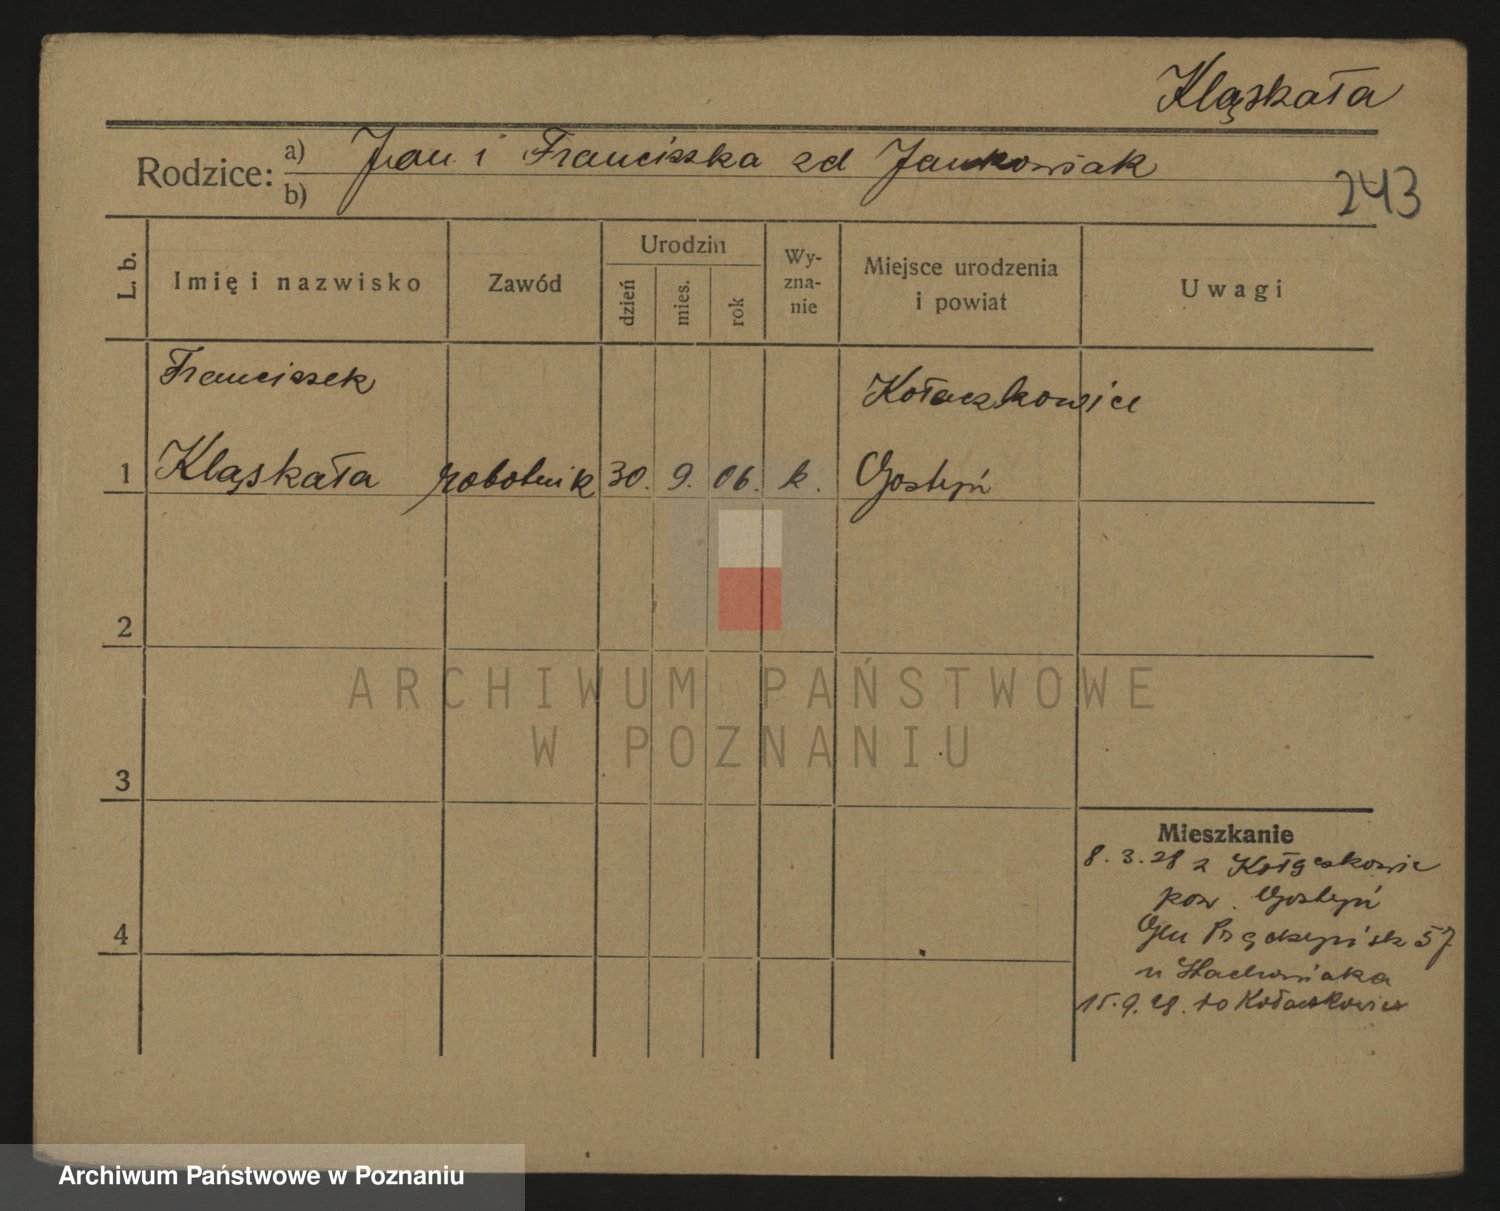 Kląskała
Rodzice: a) Jan i Franciszka zd Jankowiak
b)
243
L. b.
Imię i nazwisko
Zawód
Urodzin
dzień
mies.
rok
Wy-
zna-
nie
Miejsce urodzenia
i powiat
Uwagi
Franciszek
Kołaczkowice
1 Kląskała robotnik 30. 9. 06. k. Gostyń
2
3
4
Mieszkanie
8. 3. 28 z Kołaczkowic
pow. Gostyń
57
u Stachowiaka
15. 9. 28. do Kołaczkowice
ARCHIWUM PAŃSTWOWE
W POZNANIU
Archiwum Państwowe w Poznaniu